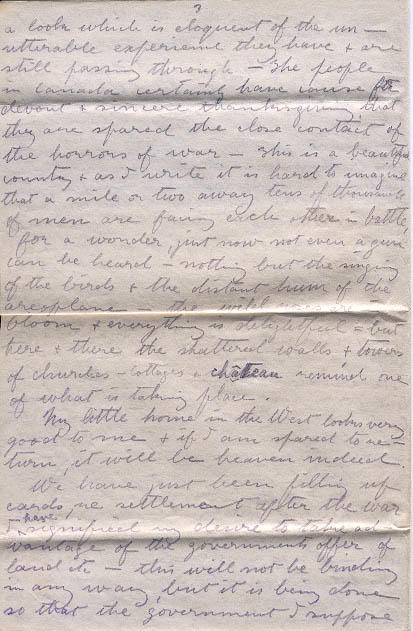 3
a look which is eloquent of the un-
utterable experience they have & are
still passing through - The people
in Canada certainly have cause for
devout & sincere thanksgiving that
they are spared the close contact of
the horrors of war - This is a beautiful
country & as I write it is hard to imagine
that a mile or two away tens of thousands
of men are facing each other in battle
for a wonder, just now not even a gun
can be heard - nothing but the singing
of the birds & the distant hum of the
areoplane - the wild roses are in
bloom & everything is delightful - but
here & there the shattered walls & towers
of churches - cottages & château remind one
of what is taking place.
My little home in the West looks very
good to me & if I am spared to re-
turn, it will be heaven indeed.
We have just been filling up
cards, re settlement after the war
I have signified my desire to take ad
vantage of the governments offer of
land etc - this will not be binding
in any way but it is being done
so that the government I suppose